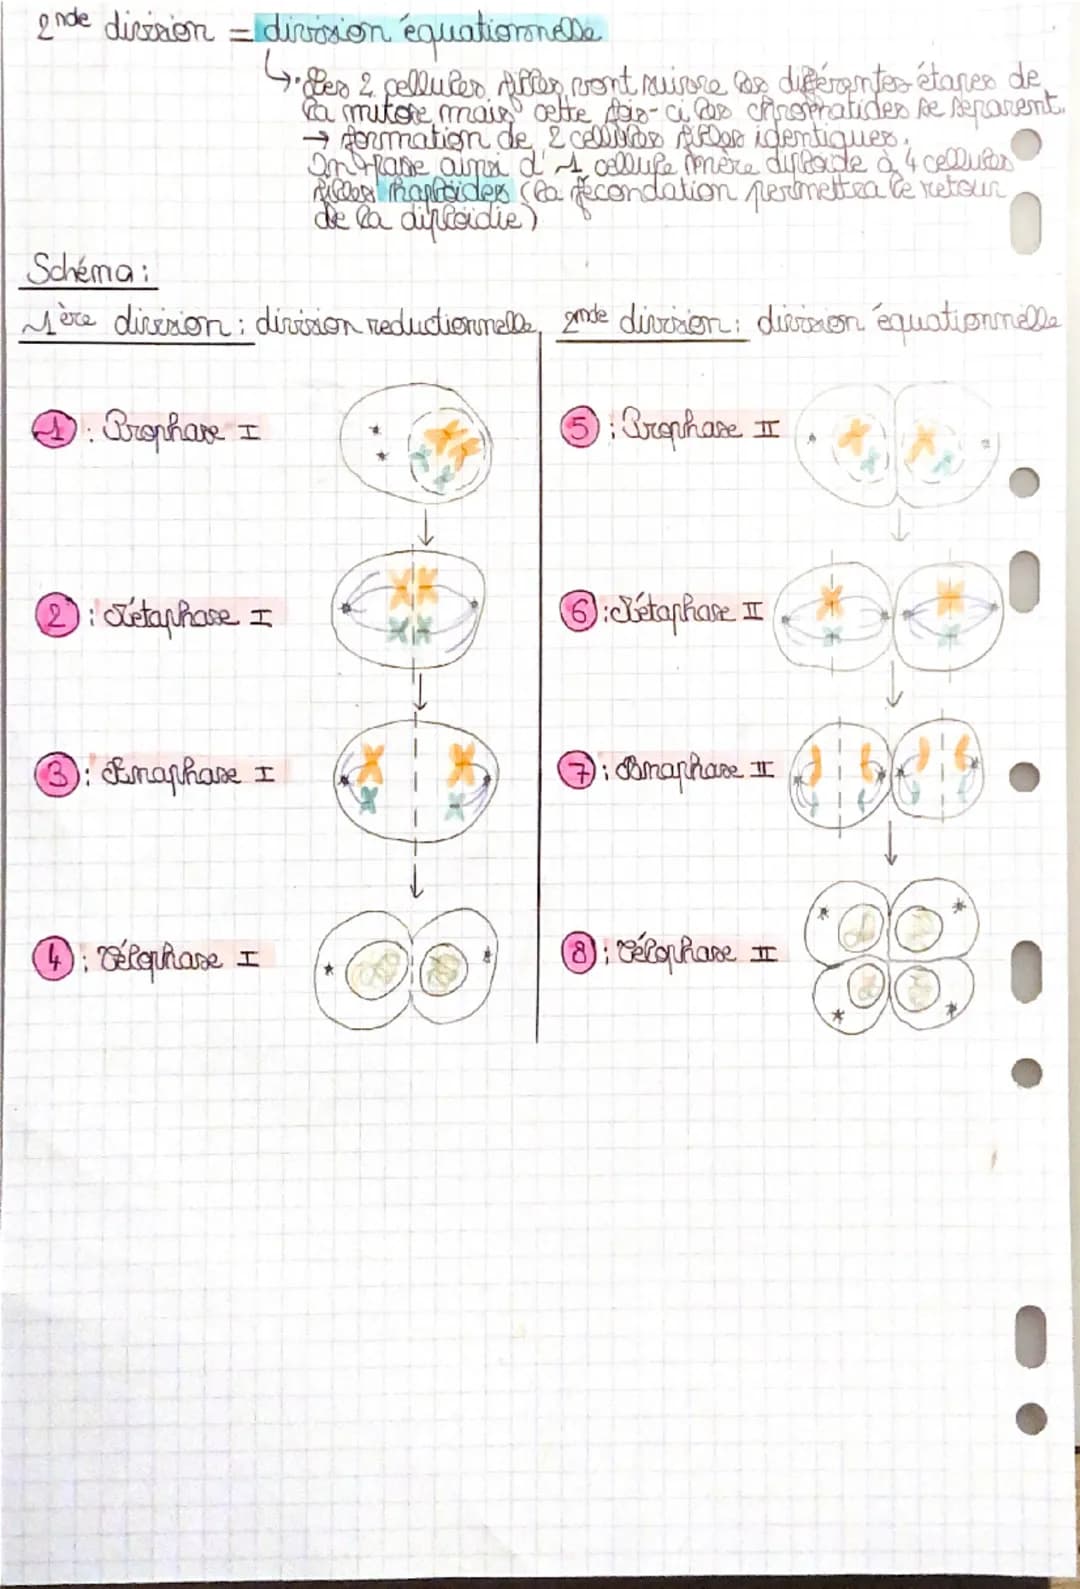 2nde division = division équationnelle
↳ • Les 2 cellules filles vont suivre les différentes étapes de
la mitose mais cette fois-ci les chromatides se séparent.
→ formation de 2 cellules filles identiques.
On passe ainsi d'1 cellule mère diploïde à 4 cellules
filles haploïdes (la fécondation permettra le retour
de la diploïdie)
Schéma :
1ère division : division reductionnelle
2nde division : division équationnelle
1 : Prophase I
5 : Prophase II
2 : Métaphase I
6 : Métaphase II
3 : Anaphase I
7 : Anaphase II
4 : Télophase I
8 : Télophase II